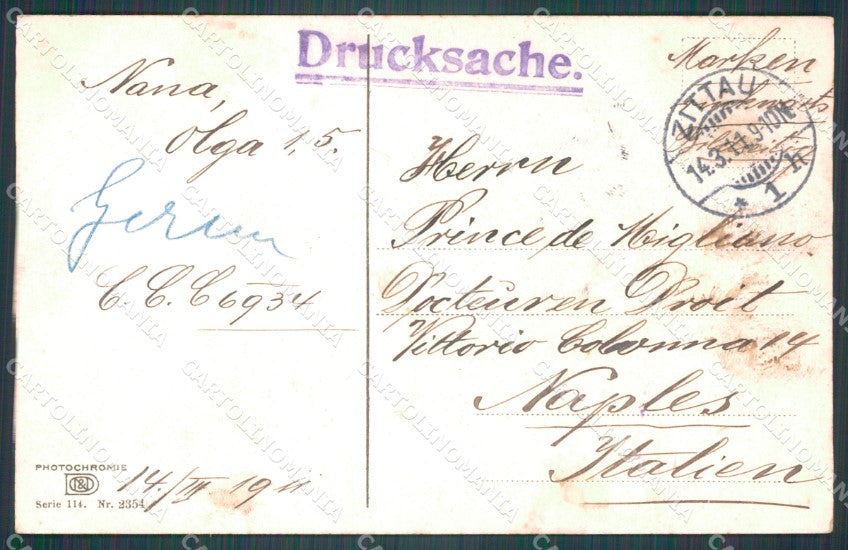 Drucksache.
Nana,
Olga 1,5.
C. C. C 6934
PHOTOCHROMIE
Serie 114. Nr. 2354
14./III 1911
Marken
ZITTAU
14.3.11.9-10N.
* 1 h
Herrn
Prince de Migliano
Docteur en Droit
Vittorio Colonna 14
Naples
Italien
CARTOLINOMANIA